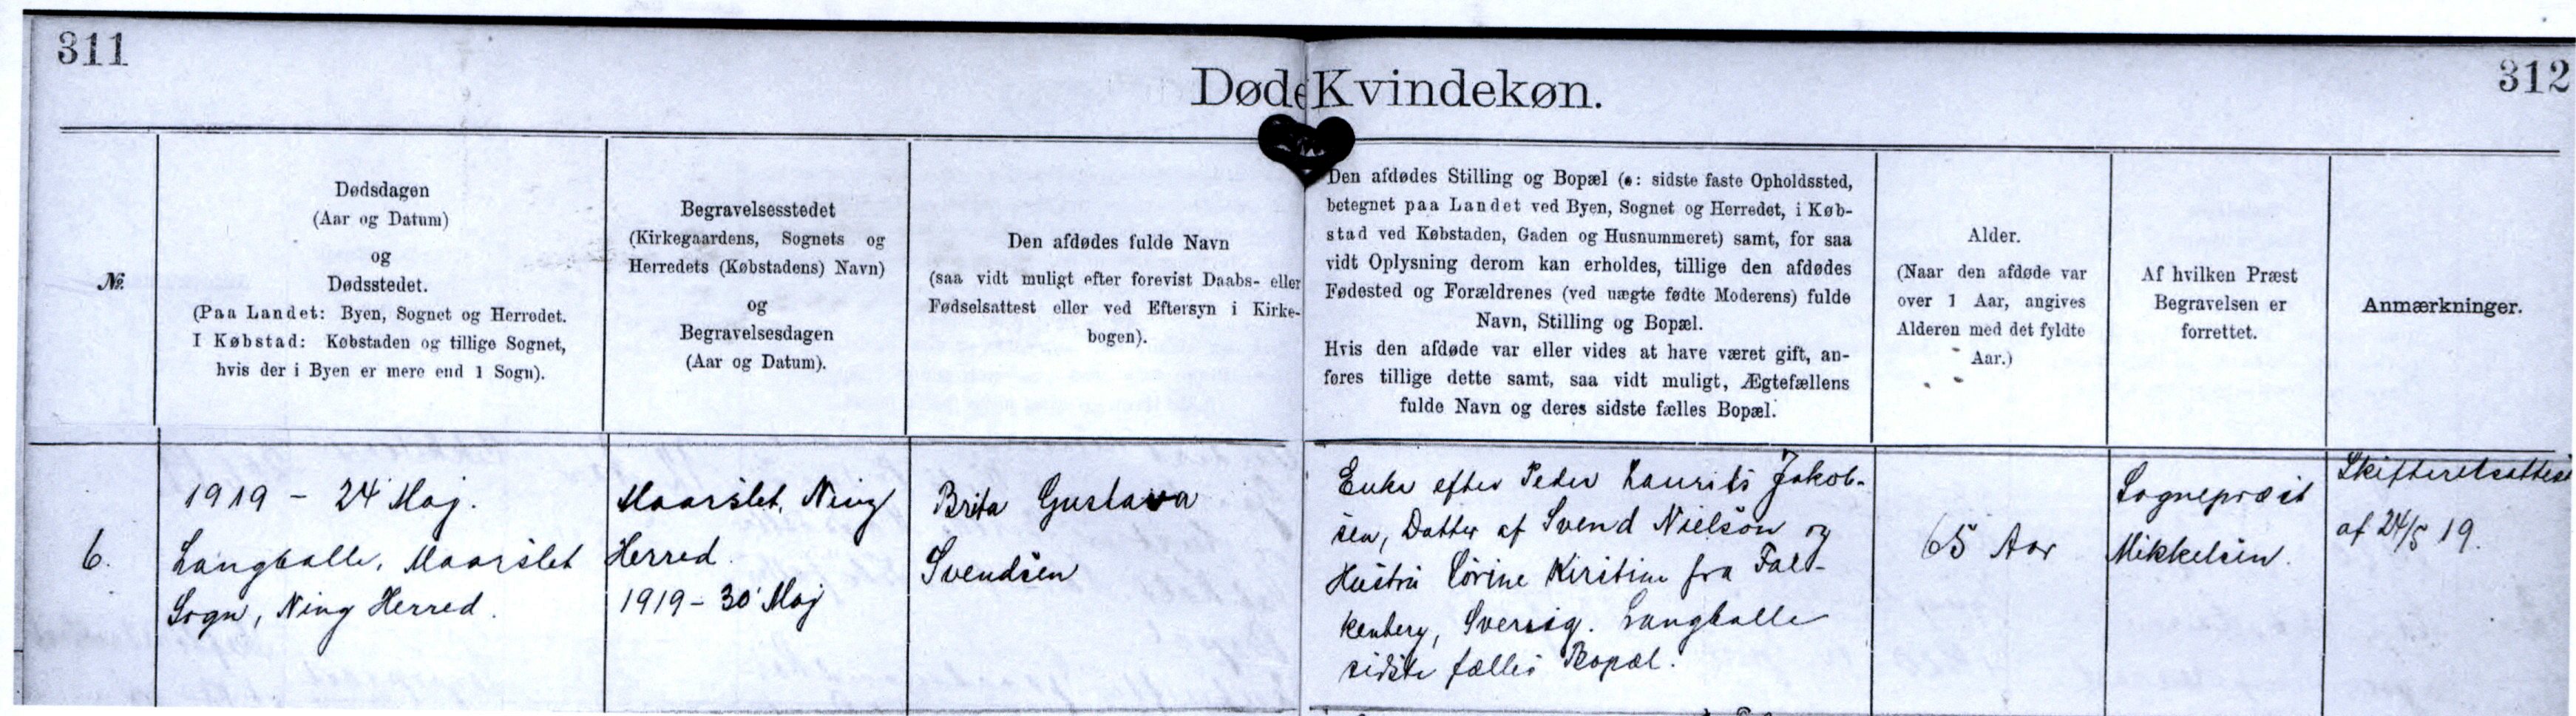 311
312
Døde Kvindekøn.
№
Dødsdagen
(Aar og Datum)
og
Dødsstedet.
(Paa Landet: Byen, Sognet og Herredet.
I Købstad: Købstaden og tillige Sognet,
hvis der i Byen er mere end 1 Sogn).
Begravelsesstedet
(Kirkegaardens, Sognets og
Herredets (Købstadens) Navn)
og
Begravelsesdagen
(Aar og Datum).
Den afdødes fulde Navn
(saa vidt muligt efter forevist Daabs- eller
Fødselsattest eller ved Eftersyn i Kirke-
bogen).
Den afdødes Stilling og Bopæl (ɔ: sidste faste Opholdssted,
betegnet paa Landet ved Byen, Sognet og Herredet, i Køb-
stad ved Købstaden, Gaden og Husnummeret) samt, for saa
vidt Oplysning derom kan erholdes, tillige den afdødes
Fødested og Forældrenes (ved uægte fødte Moderens) fulde
Navn, Stilling og Bopæl.
Hvis den afdøde var eller vides at have været gift, an-
føres tillige dette samt, saa vidt muligt, Ægtefællens
fulde Navn og deres sidste fælles Bopæl.
Alder.
(Naar den afdøde var
over 1 Aar, angives
Alderen med det fyldte
Aar.)
Af hvilken Præst
Begravelsen er
forrettet.
Anmærkninger.
6.
1919 - 24 Maj.
Langballe, Maarslet
Sogn, Ning Herred.
Maarslet, Ning
Herred.
1919 - 30 Maj
Brita Gustava
Svendsen
Enke efter Peder Laurits Jakob-
sen, Datter af Svend Nielson og
Hustru Sørine Kirstine fra Fal-
kenberg, Sverrig. Langballe
sidste fælles Bopæl.
65 Aar
Sognepræst
Mikkelsen.
Skifteretsattest
af 24/5 19.